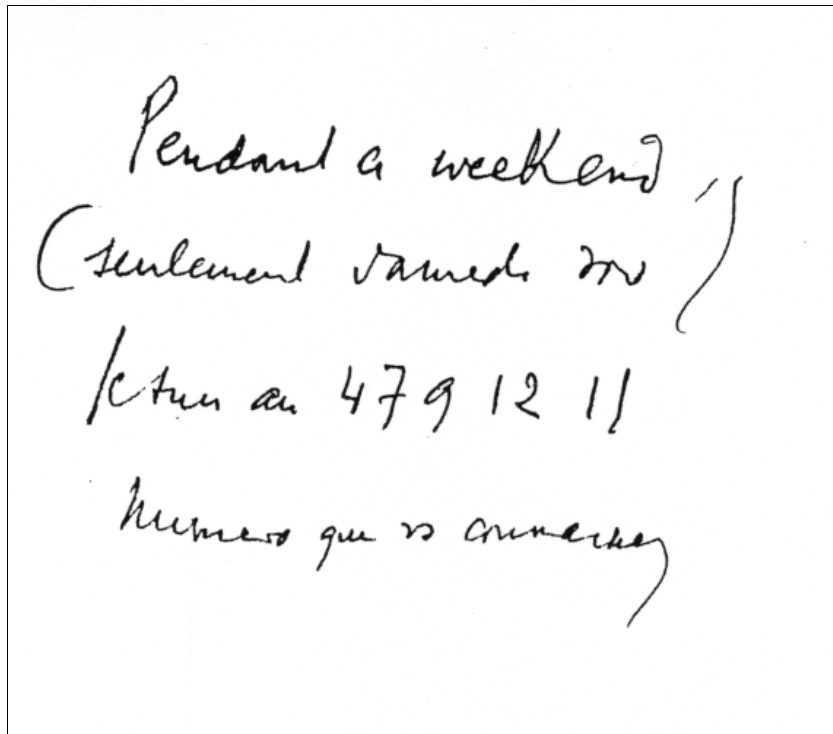 Pendant ce weekend,
(seulement samedi soir)
je suis au 479 12 11
Numero que vs connaissez